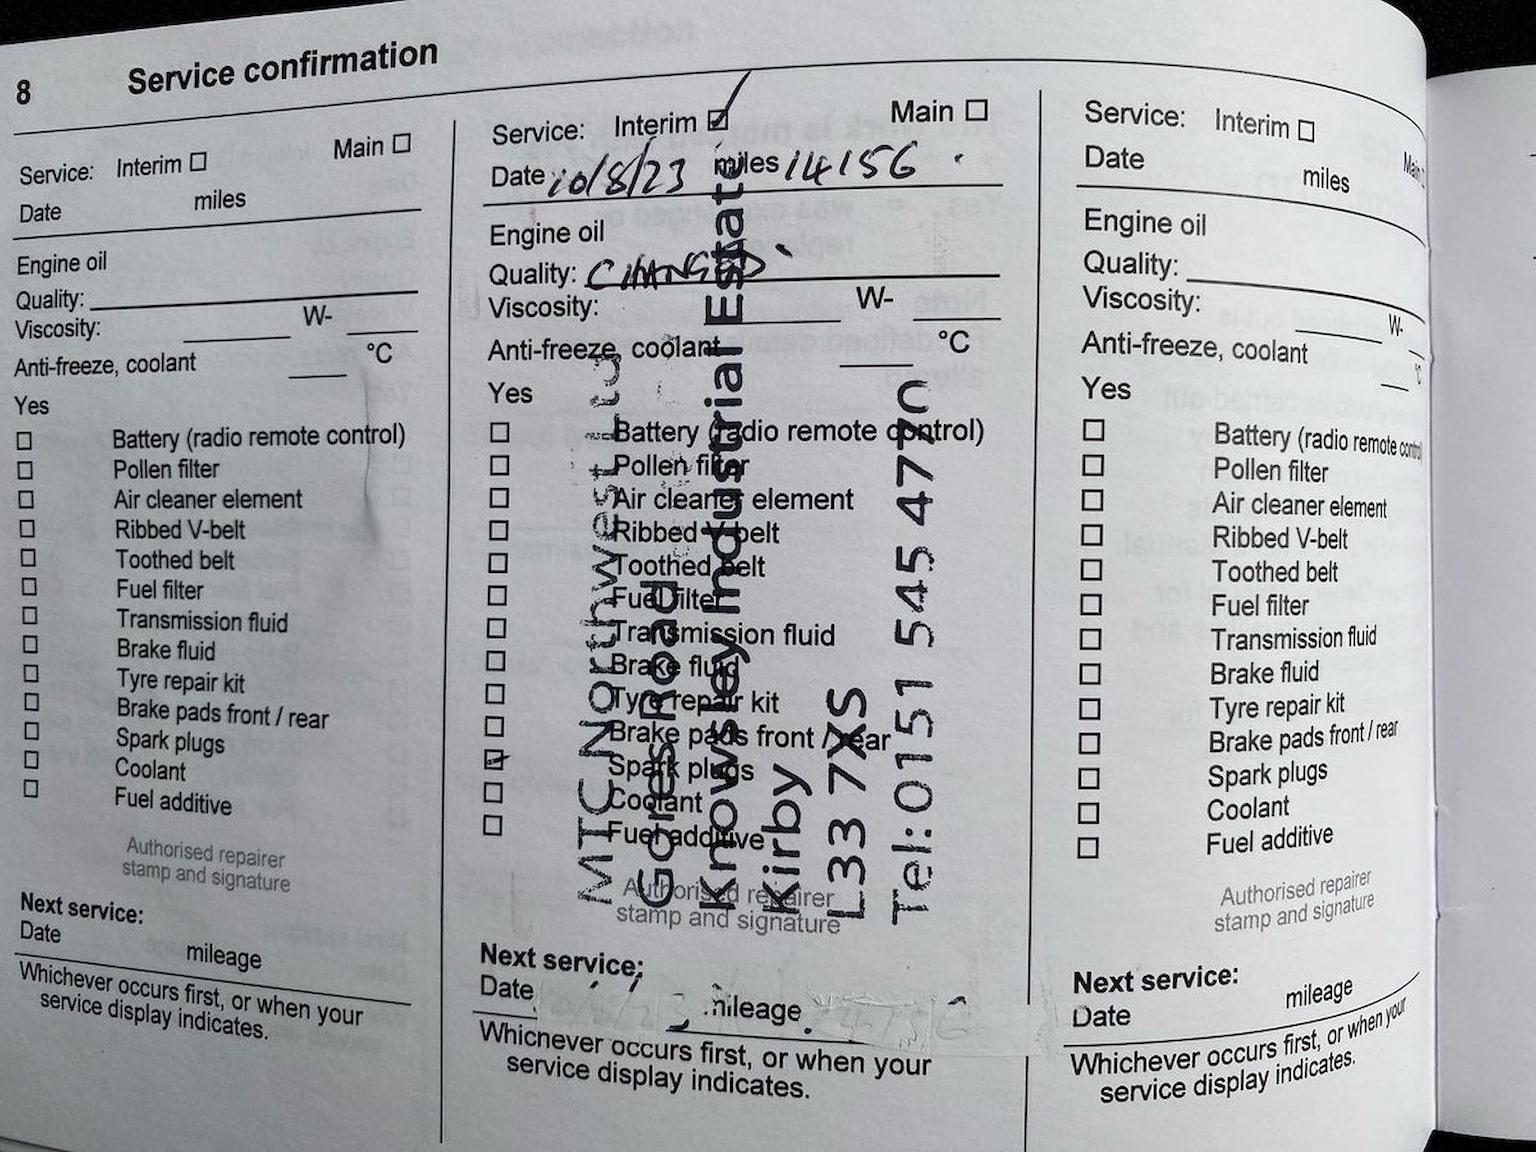 8 Service confirmation
Service: Interim Main
Date miles
Engine oil
Quality:
Viscosity: W-
Anti-freeze, coolant °C
Yes
Battery (radio remote control)
Pollen filter
Air cleaner element
Ribbed V-belt
Toothed belt
Fuel filter
Transmission fluid
Brake fluid
Tyre repair kit
Brake pads front / rear
Spark plugs
Coolant
Fuel additive
Authorised repairer
stamp and signature
Next service:
Date mileage
Whichever occurs first, or when your
service display indicates.
Service: Interim Main
Date 10/8/23 miles 14156
Engine oil
Quality: CHANGED
Viscosity: W-
Anti-freeze, coolant °C
Yes
Battery (radio remote control)
Pollen filter
Air cleaner element
Ribbed V-belt
Toothed belt
Fuel filter
Transmission fluid
Brake fluid
Tyre repair kit
Brake pads front / rear
Spark plugs
Coolant
Fuel additive
Authorised repairer
stamp and signature
MTC Northwest Ltd
Gores Road
Knowsley Industrial Estate
Kirby
L33 7XS
Tel:0151 545 4770
Next service:
Date mileage
Whichever occurs first, or when your
service display indicates.
Service: Interim Main
Date miles
Engine oil
Quality:
Viscosity: W-
Anti-freeze, coolant °C
Yes
Battery (radio remote control)
Pollen filter
Air cleaner element
Ribbed V-belt
Toothed belt
Fuel filter
Transmission fluid
Brake fluid
Tyre repair kit
Brake pads front / rear
Spark plugs
Coolant
Fuel additive
Authorised repairer
stamp and signature
Next service:
Date mileage
Whichever occurs first, or when your
service display indicates.